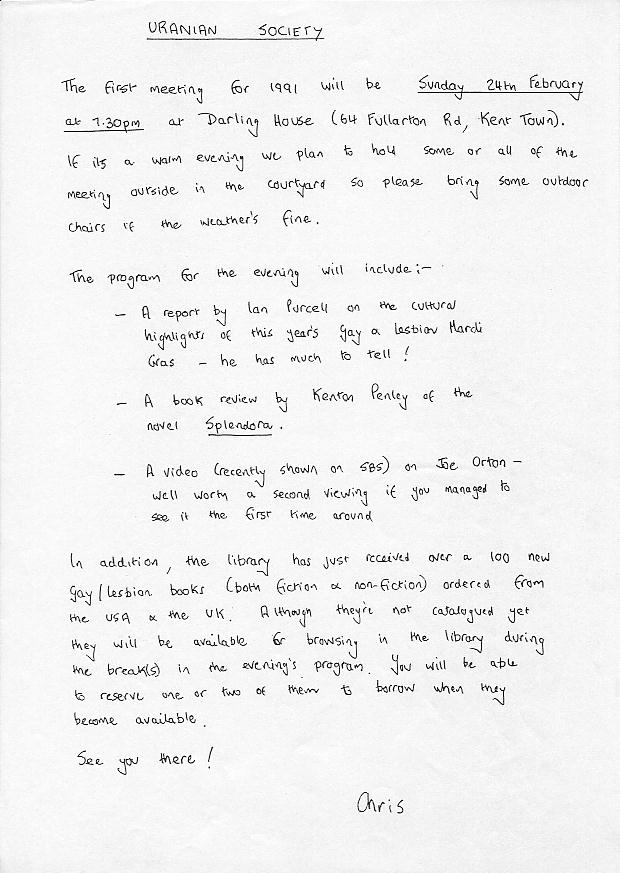 URANIAN SOCIETY
The first meeting for 1991 will be Sunday 24th February
at 7.30pm at Darling House (64 Fullarton Rd, Kent Town).
If its a warm evening we plan to hold some or all of the
meeting outside in the courtyard so please bring some outdoor
chairs if the weather's fine.
The program for the evening will include:-
- A report by Ian Purcell on the cultural
highlights of this year's Gay & Lesbian Mardi
Gras - he has much to tell!
- A book review by Kenton Penley of the
novel Splendora.
- A video (recently shown on SBS) on Joe Orton -
well worth a second viewing if you managed to
see it the first time around
In addition, the library has just received over a 100 new
gay/lesbian books (both fiction & non-fiction) ordered from
the USA & the UK. Although they're not catalogued yet
they will be available for browsing in the library during
the break(s) in the evening's program. You will be able
to reserve one or two of them to borrow when they
become available.
See you there!
Chris